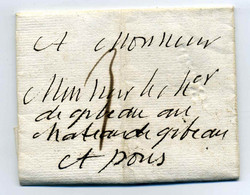 A Monsieur
Monsieur le Ch^er
de gibeau au
chateau de gibeau
A pons